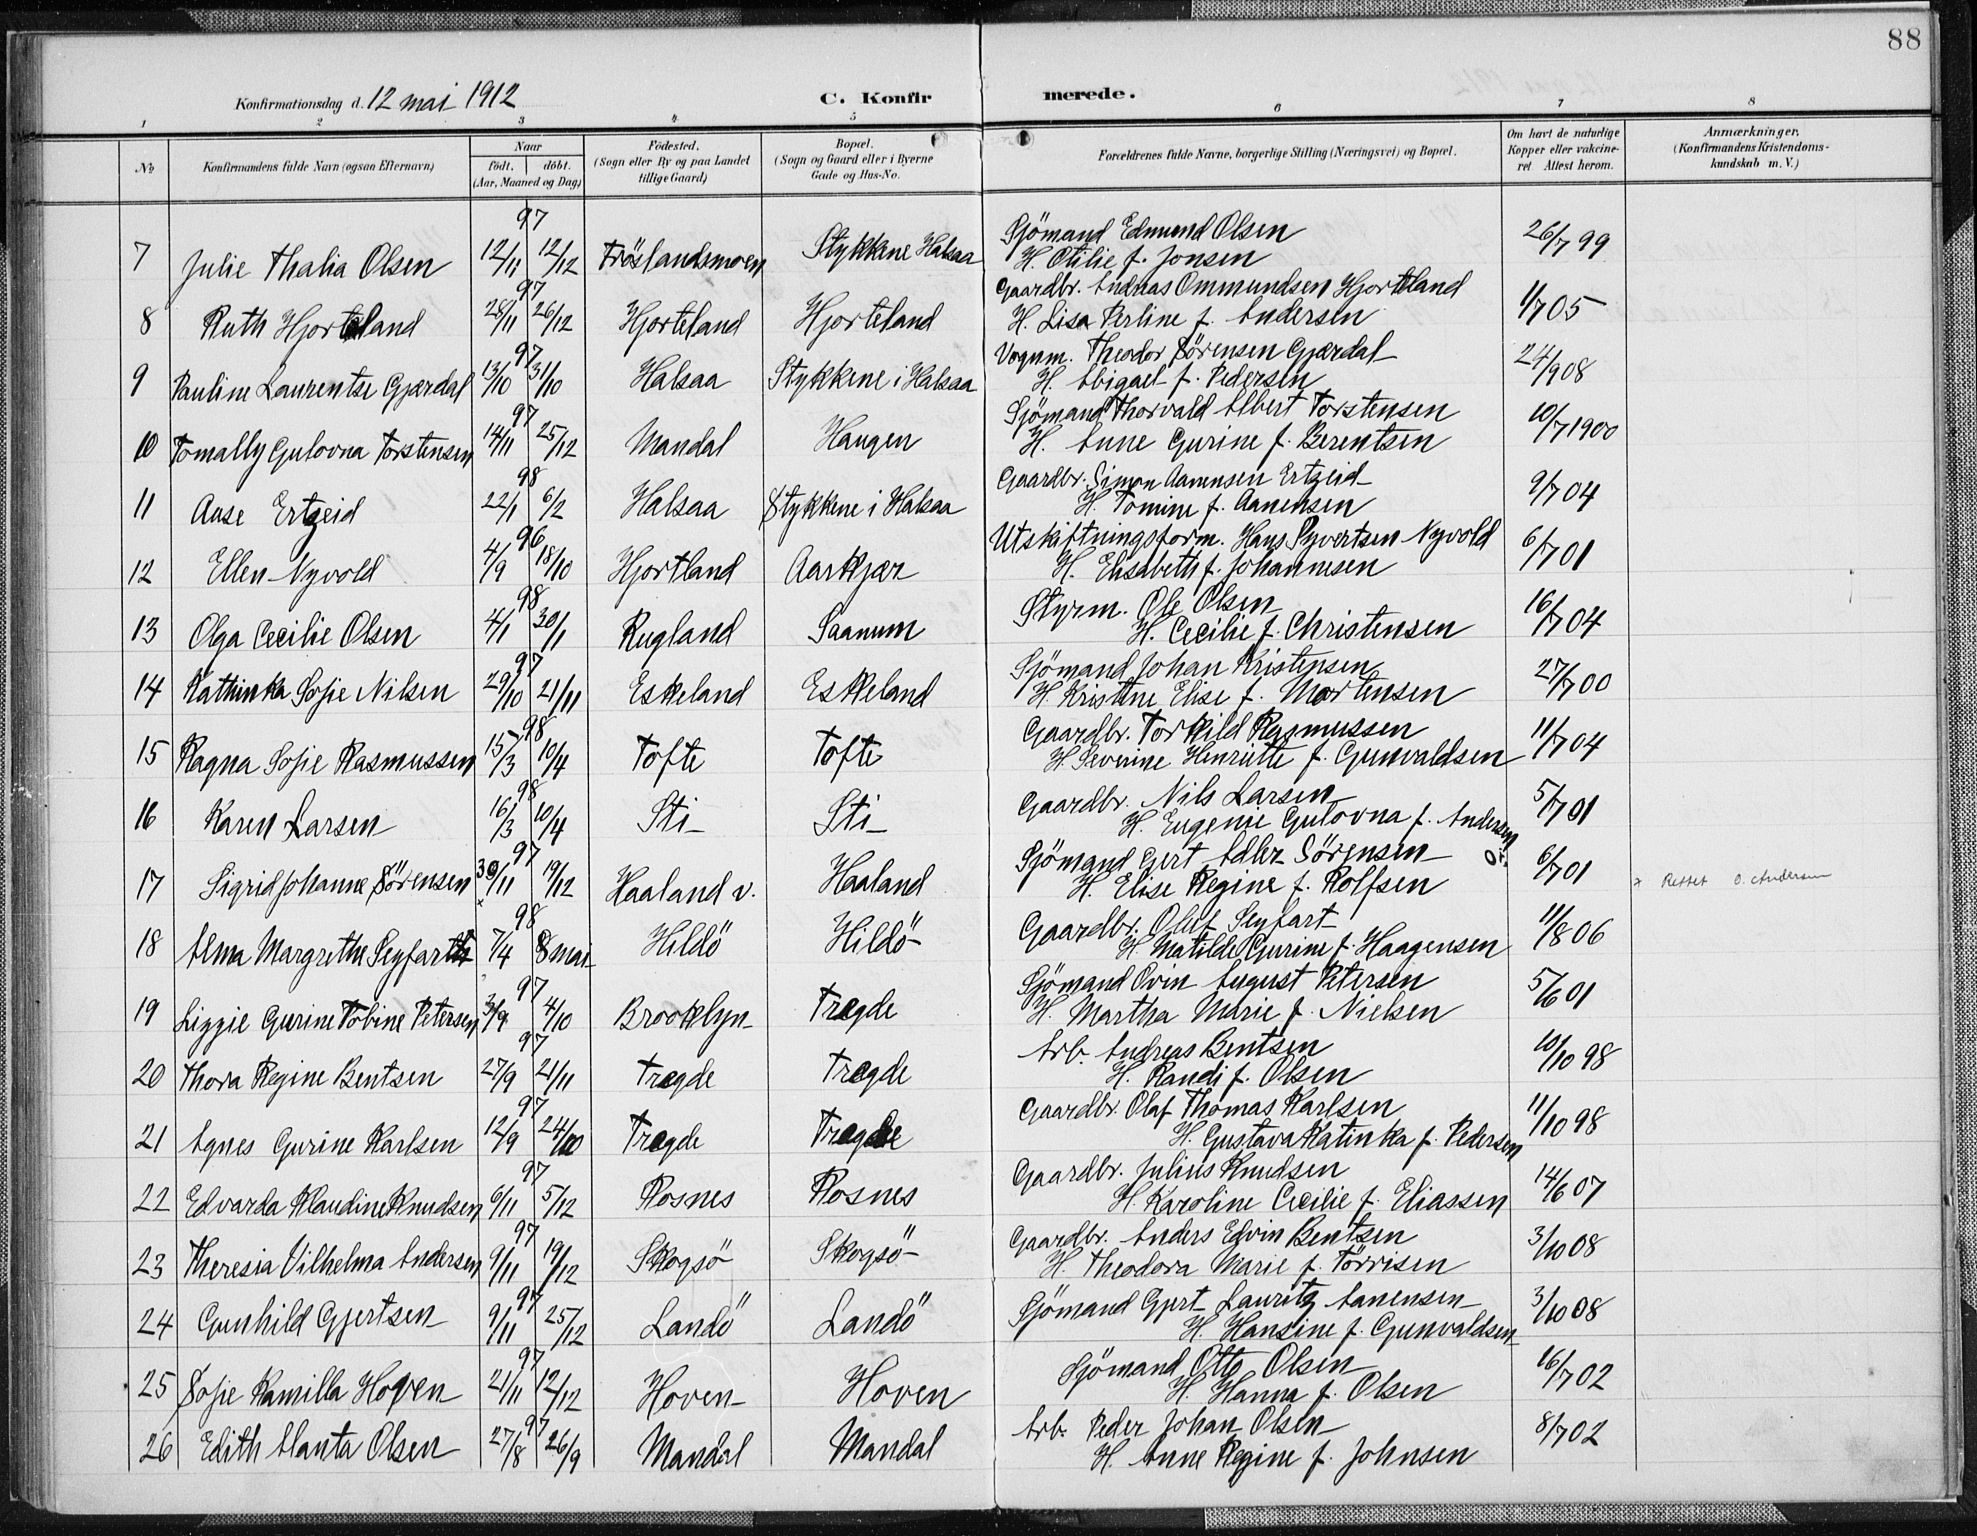 88
Konfirmationsdag d. 12 mai 1912 C. Konfirmerede.
1 2 3 4 5 6 7 8
No Konfirmandens fulde Navn (ogsaa Efternavn) Naar födt. döbt. (Aar, Maaned og Dag) Födested. (Sogn eller By og paa Landet tillige Gaard) Bopæl. (Sogn og Gaard eller i Byerne Gade og Hus-No. Forældrenes fulde Navne, borgerlige Stilling (Næringsvei) og Bopæl. Om havt de naturlige Kopper eller vakcineret Attest herom. Anmærkninger. (Konfirmandens Kristendomskundskab m. V.)
97
7 Julie Thalia Olsen 12/11 12/12 Fröslandsmoen Stykkene Halsaa Sjömand Edmund Olsen 26/7 99
H. Otilie f. Jonsen
97
8 Ruth Hjorteland 28/11 26/12 Hjorteland Hjorteland Gaardbr. Andreas Ommundsen Hjortland 1/7 05
H. Lisa Perline f. Andersen
97
9 Pauline Laurentse Gjærdal 13/10 31/10 Halsaa Stykkene i Halsaa Vognm. Theodor Sörensen Gjærdal 24/9 08
H. Abigael f. Pedersen
97
10 Tomally Gulovna Torstensen 14/11 25/12 Mandal Haugen Sjömand Thorvald Albert Torstensen 10/7 1900
H. Anne Gurine f. Berentsen
98
11 Aase Ertzeid 22/1 6/2 Halsaa Stykkene i Halsaa Gaardbr. Simon Aanensen Ertzeid 9/7 04
H. Tomine f. Aanensen
96
12 Ellen Nyvold 4/9 18/10 Hjortland Aarkjær Utskiftningsform. Hans Syvertsen Nyvold 6/7 01
H. Elisabeth f. Johannesen
98
13 Olga Cecilie Olsen 4/1 30/1 Rugland Saanum Styrm. Ole Olsen 16/7 04
H. Cecilie f. Christensen
97
14 Kathinka Sofie Nilsen 29/10 21/11 Eskeland Eskeland Sjömand Johan Kristensen 27/7 00
H. Kristine Elise f. Mortensen
98
15 Ragna Sofie Rasmussen 15/3 10/4 Tofte Tofte Gaardbr. Torkild Rasmussen 11/7 04
H. Severine Henriette f. Gunvaldsen
98
16 Karen Larsen 16/3 10/4 Sti Sti Gaardbr. Nils Larsen 5/7 01
H. Eugenie Gulovna f. Andersen
97
17 Sigrid Johanne Sörensen 30/11 19/12 Haaland v. Haaland Sjömand Gert Adler Sörensen 6/7 01 x Rettet O. Andersen
x H. Elise Regine f. Rolfsen
98
18 Alma Margrethe Seyfarth 7/4 8 mai Hildö Hildö Gaardbr. Oluf Seyfart 11/8 06
H. Matilde Gurine f. Haagensen
97
19 Lizzie Gurine Tobine Petersen 3/9 4/10 Brooklyn Trægde Sjömand Ovin August Petersen 5/6 01
H. Martha Marie f. Nielsen
97
20 Thora Regine Bentsen 27/9 21/11 Trægde Trægde Arb. Andreas Bentsen 10/10 98
H. Randi f. Olsen
97
21 Agnes Gurine Karlsen 12/9 24/10 Trægde Trægde Gaardbr. Olaf Thomas Karlsen 11/10 98
H. Gustava Katinka f. Pedersen
97
22 Edvarda Klaudine Knudsen 6/11 5/12 Rosnes Rosnes Gaardbr. Julius Knudsen 14/6 07
H. Karoline Cecilie f. Eliassen
97
23 Theresia Vilhelma Andersen 9/11 19/12 Skogsö Skogsö Gaardbr. Anders Edvin Bentsen 3/10 08
H. Theodora Marie f. Törrisen
97
24 Gunhild Gjertsen 9/11 25/12 Landö Landö Sjömand Gjert Lauritz Aanensen 3/10 08
H. Hansine f. Gunvaldsen
97
25 Sofie Kamilla Hoven 21/11 12/12 Hoven Hoven Sjömand Otto Olsen 16/7 02
H. Hanna f. Olsen
97
26 Edith Alanta Olsen 27/8 26/9 Mandal Mandal Arb. Peder Johan Olsen 8/7 02
H. Anne Regine f. Johnsen